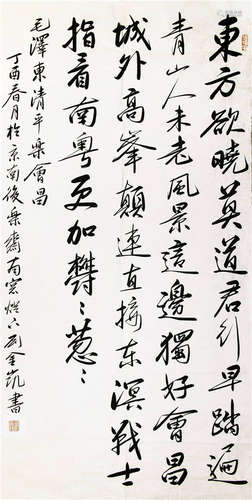 東方欲曉莫道君行早踏遍
青山人未老風景這邊獨好會昌
城外高峯顛連直接东溟戰士
指看南粤更加鬱〻葱〻
毛澤東清平樂會昌
丁酉春月於京南後樂齋南窗燈下劉金凱書